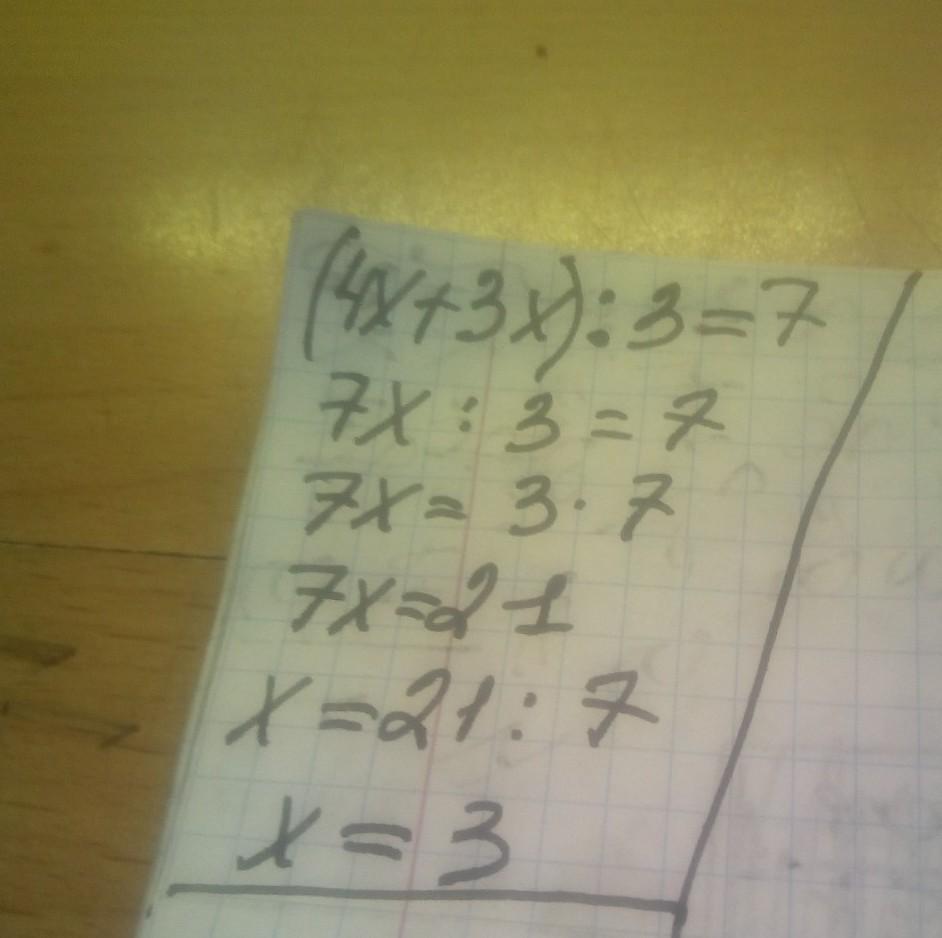 (4x+3x):3=7
7x:3=7
7x=3·7
7x=21
x=21:7
x=3